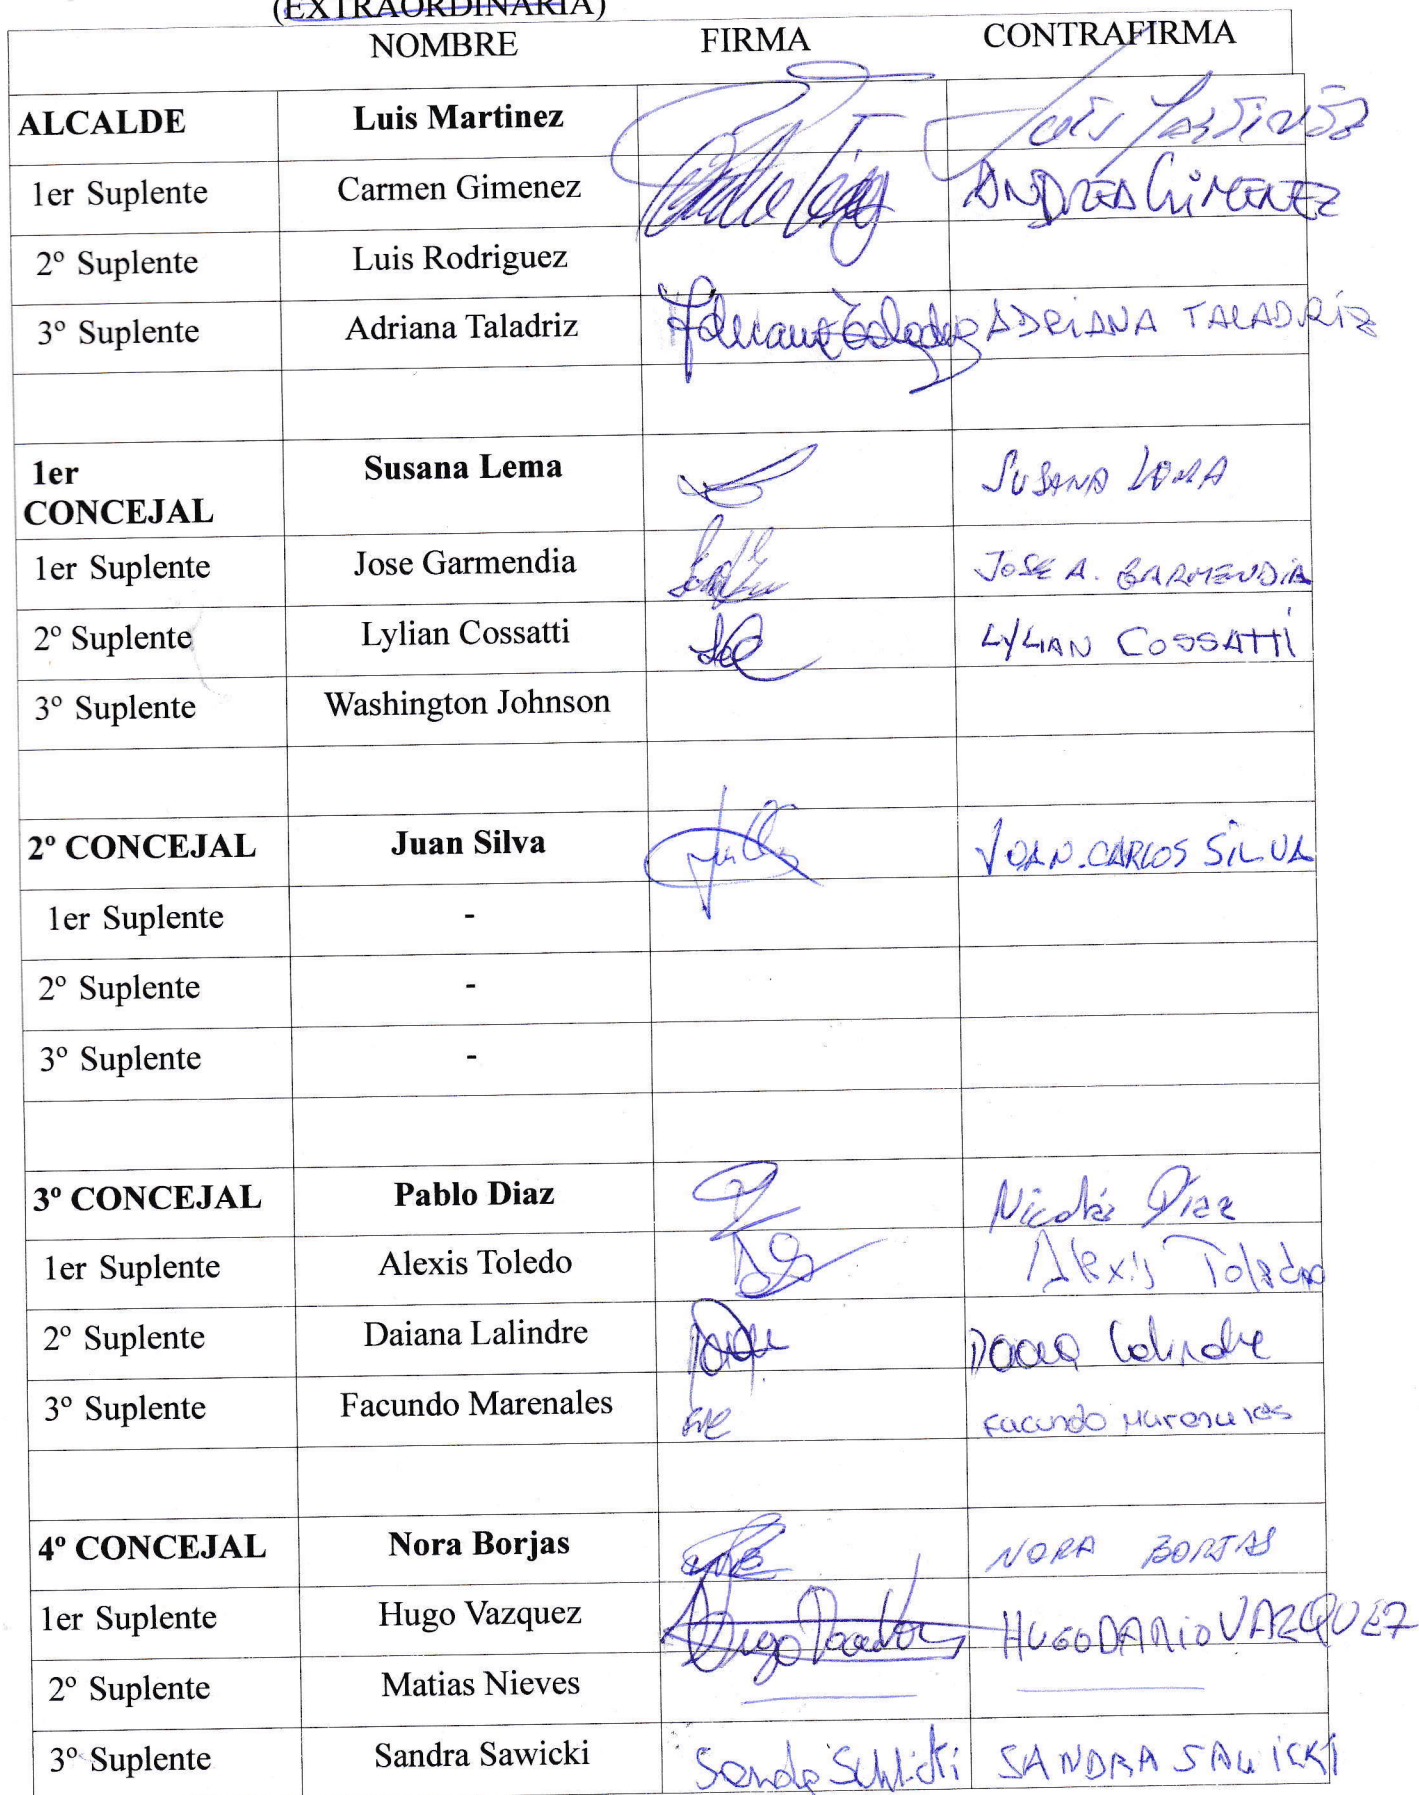 (EXTRAORDINARIA)
NOMBRE FIRMA CONTRAFIRMA
ALCALDE Luis Martinez Luis Martinez
1er Suplente Carmen Gimenez ANDREA GIMENEZ
2º Suplente Luis Rodriguez
3º Suplente Adriana Taladriz Adriana Taladriz ADRIANA TALADRIZ
1er Susana Lema SUSANA LEMA
CONCEJAL
1er Suplente Jose Garmendia JOSE A. GARMENDIA
2º Suplente Lylian Cossatti LYLIAN COSSATTI
3º Suplente Washington Johnson
2º CONCEJAL Juan Silva JUAN.CARLOS SILVA
1er Suplente -
2º Suplente -
3º Suplente -
3º CONCEJAL Pablo Diaz Nicolás Diaz
1er Suplente Alexis Toledo Alexis Toledo
2º Suplente Daiana Lalindre Lalindre
3º Suplente Facundo Marenales Facundo Marenales
4º CONCEJAL Nora Borjas NORA BORJAS
1er Suplente Hugo Vazquez Hugo HUGO DARIO VAZQUEZ
2º Suplente Matias Nieves
3º Suplente Sandra Sawicki Sandra Sawicki SANDRA SAWICKI